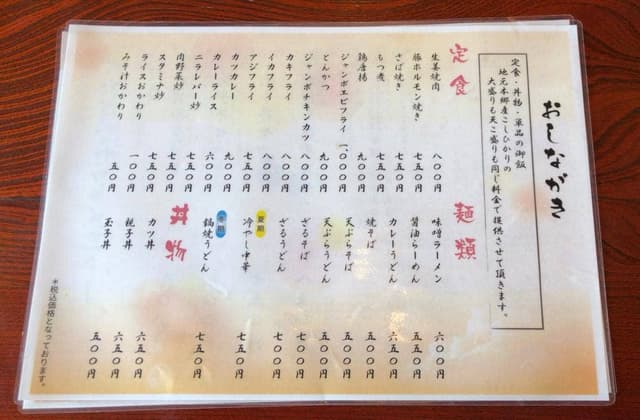 おしながき
定食・丼物・単品の御飯
地元本郷産こしひかりの
大盛りも天こ盛りも同じ料金で提供させて頂きます。
定食
生姜焼肉 八〇〇円
豚ホルモン焼き 七五〇円
さば焼き 七五〇円
もつ煮 七五〇円
鶏唐揚 九〇〇円
ジャンボエビフライ 一、〇〇〇円
とんかつ 九〇〇円
ジャンボチキンカツ 八〇〇円
カキフライ 八〇〇円
イカフライ 八〇〇円
アジフライ 七五〇円
カツカレー 九〇〇円
カレーライス 六〇〇円
ニラレバー炒 七五〇円
肉野菜炒 七五〇円
スタミナ炒 七五〇円
ライスおかわり 一〇〇円
みそ汁おかわり 五〇円
麺類
味噌ラーメン 六〇〇円
醤油らーめん
カレーうどん
焼そば
天ぷらそば
天ぷらうどん
ざるそば
ざるうどん
夏期 冷やし中華 七五〇円
冬期 鍋焼うどん 七五〇円
丼物
カツ丼 六五〇円
親子丼 六五〇円
玉子丼 五〇〇円
*税込価格となっております。